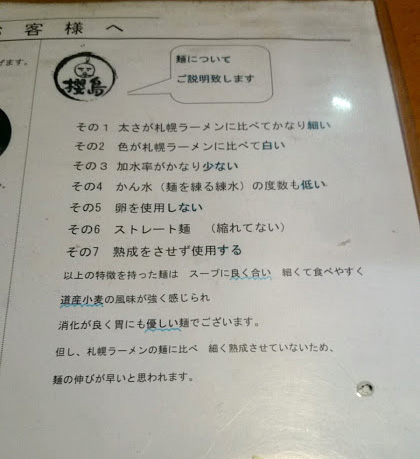 お客様へ
げます。
麺について
ご説明致します
その1 太さが札幌ラーメンに比べてかなり細い
その2 色が札幌ラーメンに比べて白い
その3 加水率がかなり少ない
その4 かん水(麺を練る練水)の度数も低い
その5 卵を使用しない
その6 ストレート麺 (縮れてない)
その7 熟成をさせず使用する
以上の特徴を持った麺は スープに良く合い 細くて食べやすく
道産小麦の風味が強く感じられ
消化が良く胃にも優しい麺でございます。
但し、札幌ラーメンの麺に比べ 細く熟成させていないため、
麺の伸びが早いと思われます。